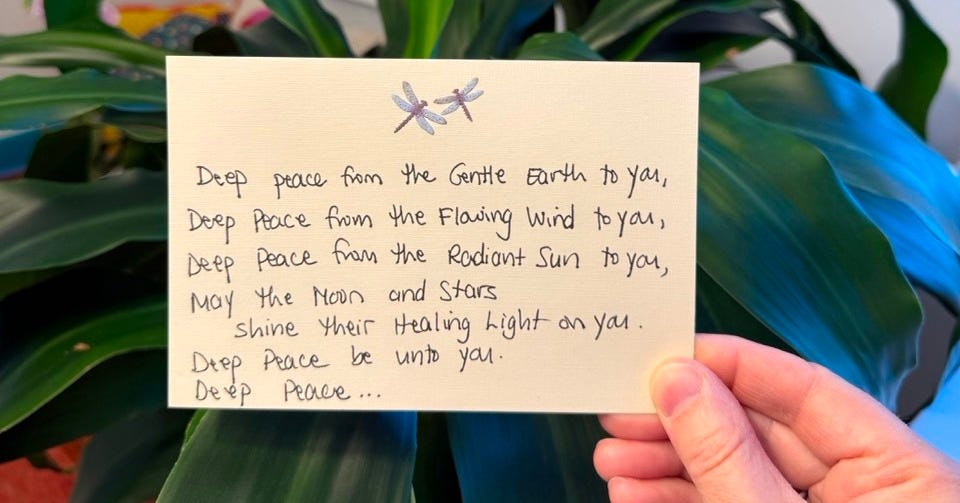 Deep peace from the Gentle Earth to you,
Deep Peace from the Flowing Wind to you,
Deep Peace from the Radiant Sun to you,
May the Moon and Stars
shine their Healing Light on you.
Deep Peace be unto you.
Deep Peace...